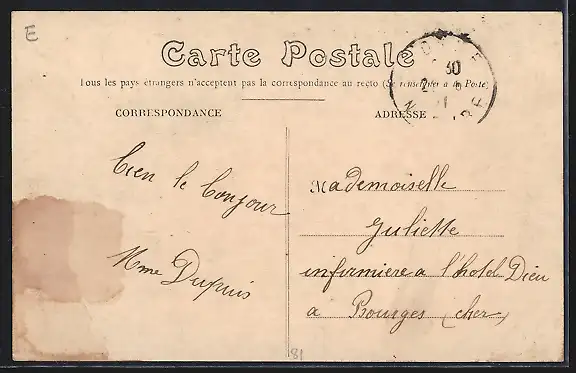 E
Carte Postale
Tous les pays étrangers n'acceptent pas la correspondance au recto (Se renseigner à la Poste)
CORRESPONDANCE
ADRESSE
30
Bien le bonjour
Mme Dupuis
Mademoiselle
Juliette
infirmiere a l'hotel Dieu
a Bourges (cher)
81